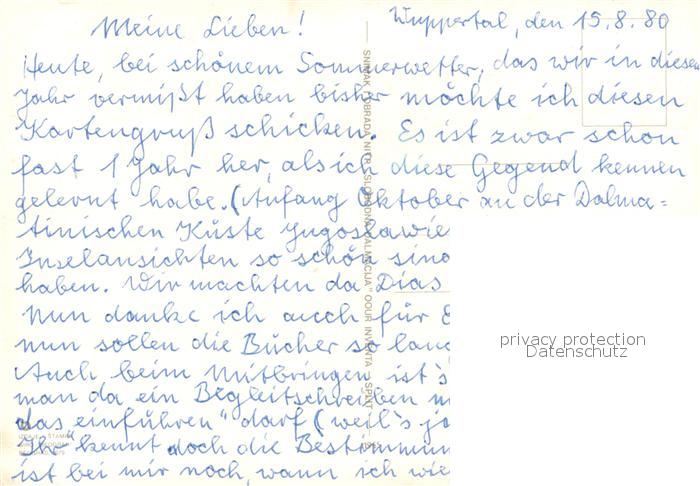 Wuppertal, den 15.8.80
Meine Lieben!
Heute, bei schönem Sommerwetter, das wir in diesem
Jahr vermißt haben bisher möchte ich diesen
Kartengruß schicken. Es ist zwar schon
fast 1 Jahr her, als ich diese Gegend kennen
gelernt habe. (Anfang Oktober an der Dalma=
tinischen Küste Jugoslawie
Inselansichten so schön sind
haben. Wir machten da Dias
Nun danke ich auch für E
nun sollen die Bücher so lang
Auch beim Mitbringen ist's
man da ein Begleitschreiben m
das einführen" darf (weil's ja
"Ihr" kennt doch die Bestimmun
ist bei mir noch, wann ich wie
privacy protection
Datenschutz